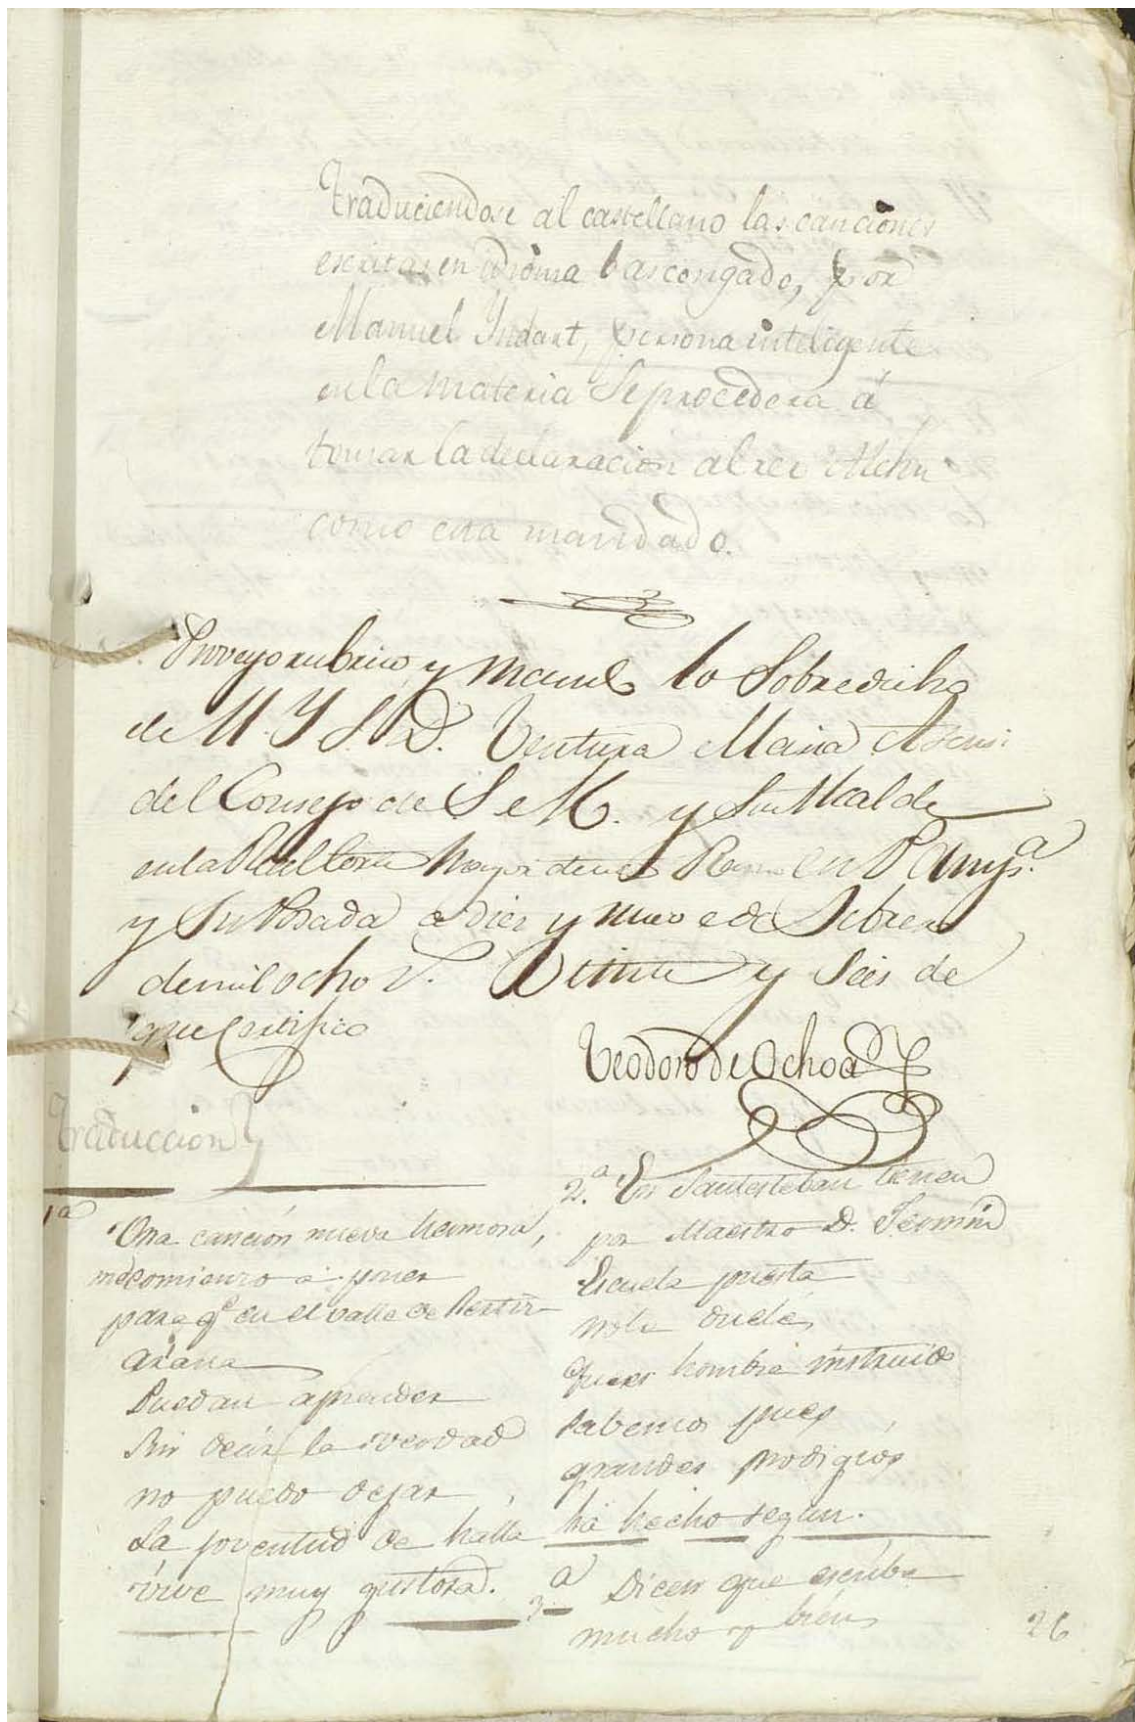 Traduciendose al castellano las canciones
escritas en idioma bascongado, por
Manuel Yndart, persona inteligente
en la materia se procedera á
tomar la declaracion al reo
como esta mandado.
Proveyo rubrico y mando lo Sobredicho
de M. Y S. D. Ventura Maria Asensi
del Consejo de S M. y Su Alcalde
en la Real Corte Mayor de este Reino en Pampª.
y Su Posada a diez y nueve de Febrero
de mil ocho C. Veinte y Seis de
que Certifico
Teodoro de Ochoa
Traduccion
1ª
Una cancion nueva hermosa,
me comienzo a poner
para qe en el valle de Bertiz
arana
Puedan aprender
Sin decir la verdad
no puedo dejar
La joventud de halla
vive muy gustosa.
2.ª En Santesteban tienen
por Maestro D. Fermin
Escuela puesta
no la dude,
que es hombre instruido
Sabemos pues
grandes prodigios
há hecho segun.
3ª Dicen que escribe
mucho y bien
26